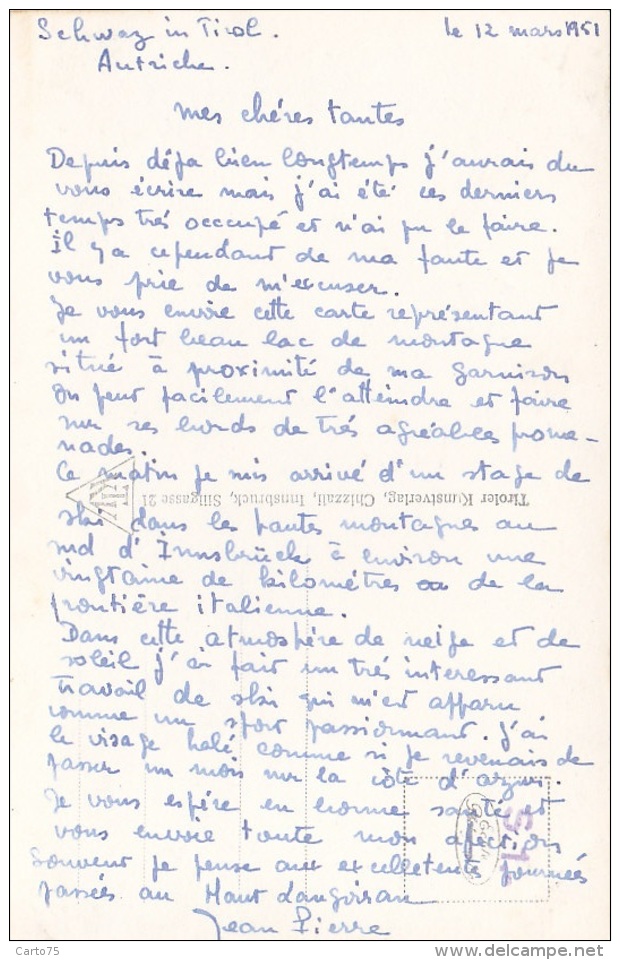 Schwaz in Tirol. le 12 mars 1951
Autriche.
mes chéres tantes
Depuis déja bien longtemps j'aurais du
vous écrire mais j'ai été ces derniers
temps trés occcupé et n'ai pu le faire.
Il y a cependant de ma faute et je
vous prie de m'excuser.
Je vous envoie cette carte représentant
un fort beau lac de montagne
situé à proximité de ma garnison
On peut facilement l'atteindre et faire
sur ses bords de trés agréables prome-
nades.
Ce matin je suis arrivé d'un stage de
Tiroler Kunstverlag, Chizzali, Innsbruck, Sillgasse 21
ski dans les hautes montagnes au
sud d'Innsbrück à environ une
vingtaine de kilométres de la
frontière italienne.
Dans cette atmospére de neige et de
soleil j'ai fait un trés interessant
travail de ski qui m'est apparu
comme un sport passionnant. J'ai
le visage halé comme si je revenais de
passer un mois sur la côte d'azur.
Je vous espére en bonne santé et
vous envoie toute mon afection
Souvent je pense aux excellentes journées
passées au Haut Langoiran
Jean Pierre
Carto75